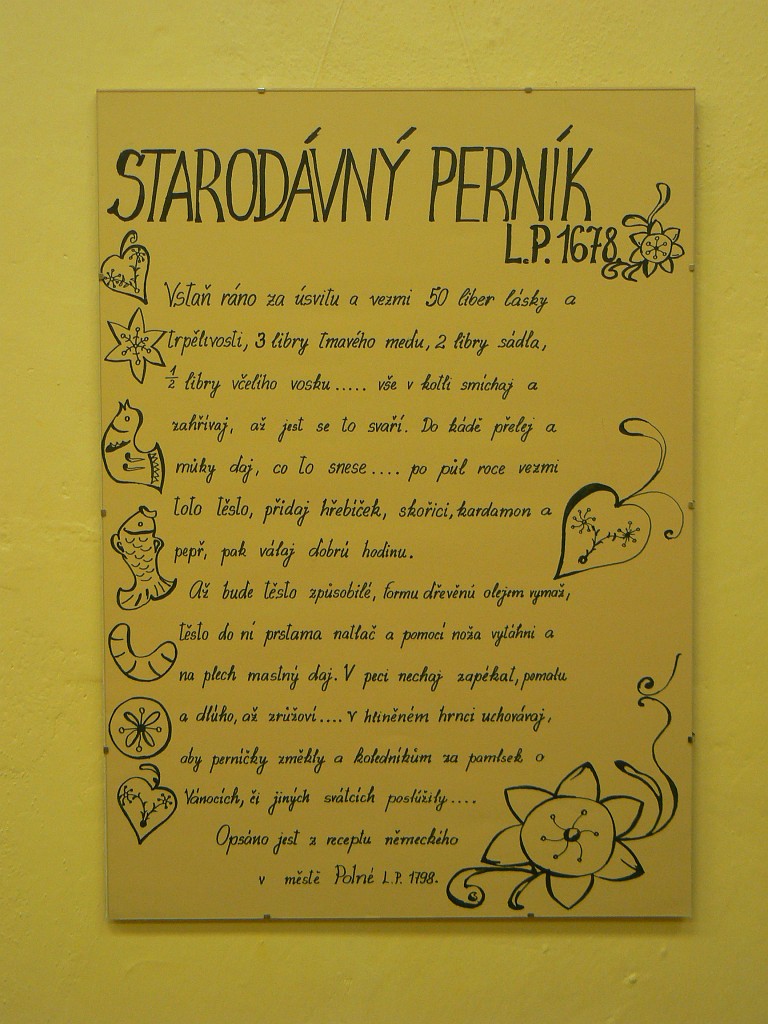 STARODÁVNÝ PERNÍK
L.P. 1678
Vstaň ráno za úsvitu a vezmi 50 liber lásky a
trpělivosti, 3 libry tmavého medu, 2 libry sádla,
½ libry včelího vosku..... vše v kotli smíchaj a
zahřívaj, až jest se to svaří. Do kádě přelej a
múky daj, co to snese.... po púl roce vezmi
toto těsto, přidaj hřebíček, skořici, kardamon a
pepř, pak válaj dobrú hodinu.
Až bude těsto způsobilé, formu dřevěnú olejem vymaž,
těsto do ní prstama natlač a pomocí noža vytáhni a
na plech mastný daj. V peci nechaj zapékat, pomalu
a dlúho, až zrůžoví.... v hliněném hrnci uchovávaj,
aby perníčky změkly a koledníkům za pamlsek o
Vánocích, či jiných svátcích poslúžily....
Opsáno jest z receptu německého
v městě Polné L.P. 1798.